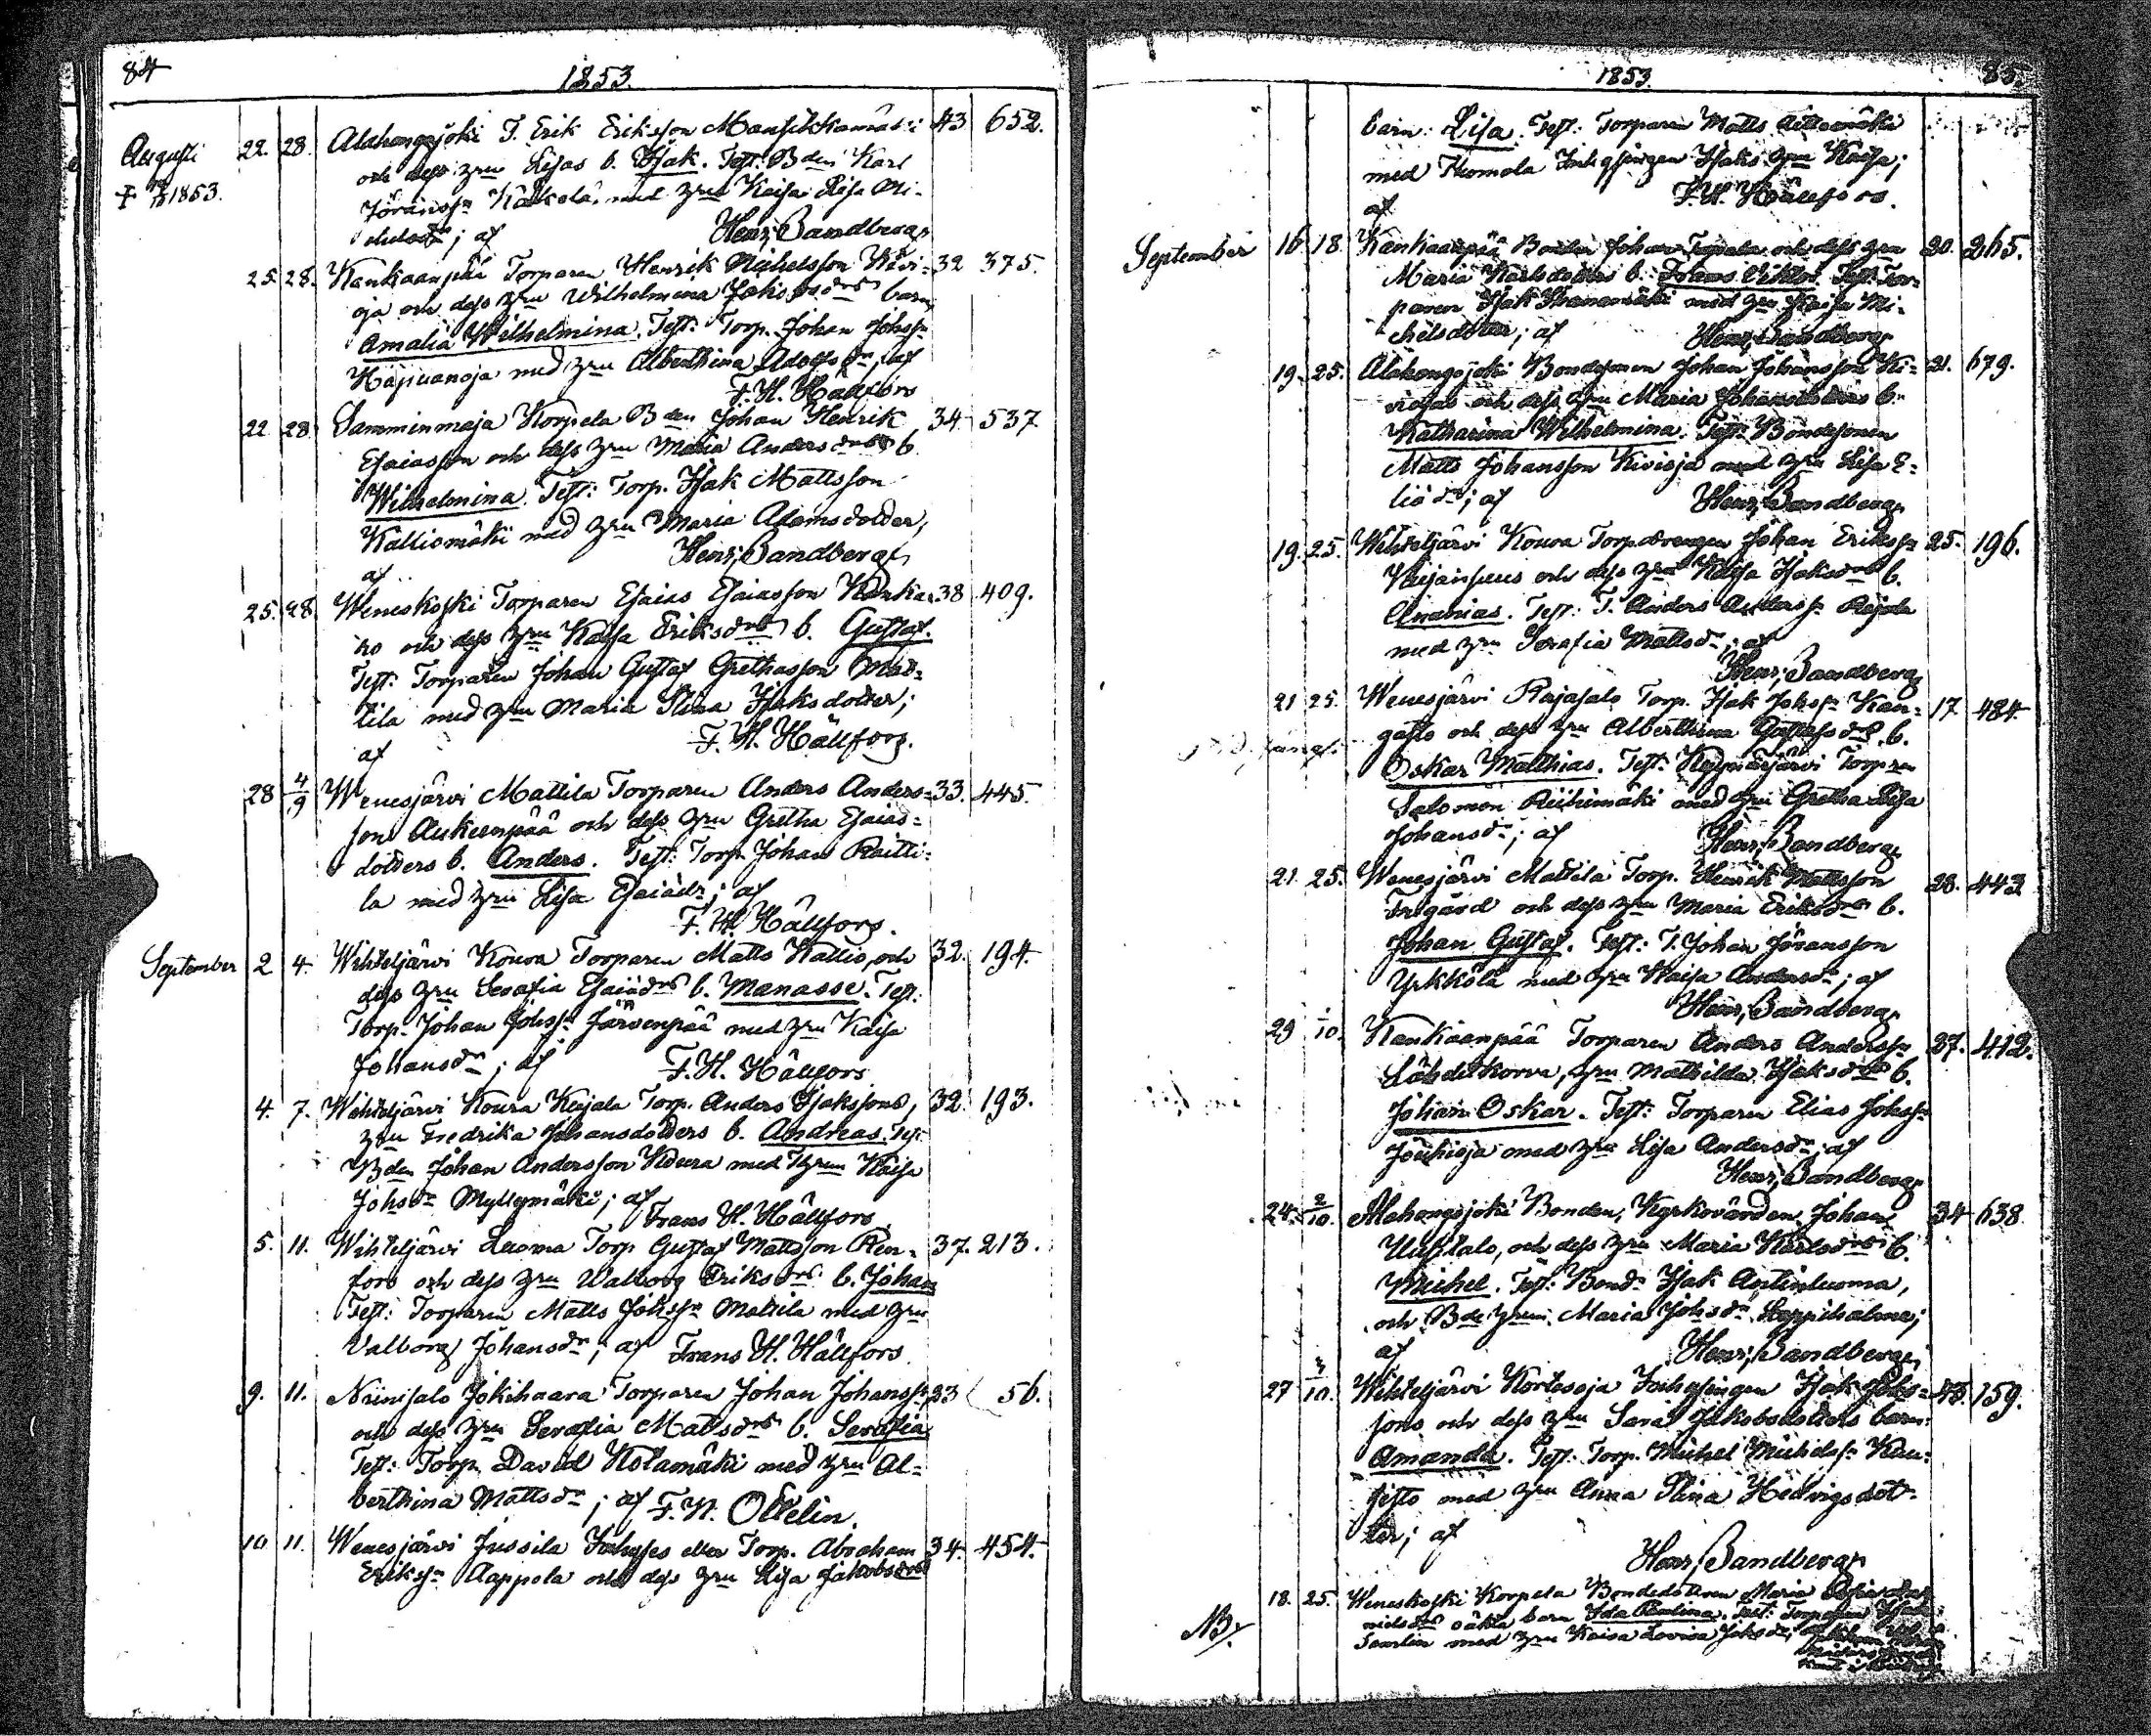 84
1853.
Augusti 22. 28. Alahongojoki T. Erik Eriksson Mansikkamäki 43 652.
och dess hru Lisas b. Isak. Test: Bden Karl
1853.
Köralä med hru Kaisa Lisa Mi-
; af Henr; Sandberg
25. 28. Kankaanpää Torparen Henrik Michelsson Kivi- 32 375.
oja och dess hru Wilhelmina barn
Amalia Wilhelmina. Test: Torp. Johan Johss.
Hapuanoja med hru Alberthina Adolfsdr; af
F. H. Hällfors
22 28 Samminmaja Korpela Bden Johan Henrik 34 537
Esaiasson och dess hru Maria Andersdrs b.
Wilhelmina. Test: Torp. Isak Mattsson
Kalliomäki med hru Maria Adamsdotter,
af Henr; Sandberg
25. 28. Weneskoski Torparen Esaias Esaiasson Kanka- 38 409.
ro och dess hru Kaisa Eriksdrs b. Gustaf.
Test: Torparen Johan Gustaf Grethasson Mat-
tila med hru Maria Stina Isaksdotter;
af F. H. Hällfors.
28 4/9 Wenesjärvi Mattila Torparen Anders Anders- 33. 445.
son Aukeenpää och dess hru Gretha Esaias-
dotters b. Anders. Test: Torp. Johan Raitti-
la med hru Lisa Esaiædr; af
F. H. Hällfors.
September 2 4. Wihteljärvi Koura Torparen Matts Kallio, och 32. 194.
dess hru Serafia Esaiædrs b. Manasse. Test:
Torp. Johan Johss. Järvenpää med hru Kaisa
Johansdr; af F. H. Hällfors
4. 7. Wihteljärvi Koura Torp. Anders Isakssons, 32. 193.
hru Fredrika Johansdotters b. Andreas. Test:
Bden Johan Andersson Koura med hrun Kaisa
Johsdr Myllymäki; af
Frans H. Hällfors
5. 11. Wihteljärvi Luoma Torp Gustaf Mattsson Ren- 37. 213.
fors och dess hru Walborg Eriksdrs b. Johan
Test: Torparen Matts Johss. Mattila med hru
Valborg Johansdr; af Frans H. Hällfors
9. 11. Niinisalo Jokihaara Torparen Johan Johanss. 23 56.
och dess hru Serafia Mattsdrs b. Serafia
Test: Torp. David Kolamäki med hru Al-
berthina Mattsdr; af F. H. Ottelin.
10 11. Wenesjärvi Jussila eller Torp. Abraham 34. 454.
Erikss. Aappola och dess hru Lisa Jakobsdrs
1853. 85.
barn: Lisa. Test: Torparen Matts
med Isaks hru Kaisa;
af F. H. Hällfors.
September 16 18. Kankaanpää Bonden Johan och dess hru 20. 265.
Maria Karlsdotters b. Frans Viktor. Test: Tor-
paren Isak med hru Kaisa Mi-
chelsdotter; af Henr; Sandberg
19. 25. Alahongojoki Bondesonen Johan Johansson Ki- 21. 679.
viojas och dess hru Maria Johansdotters b.
Katharina Wilhelmina. Test: Bondesonen
Matts Johansson Kivioja med hru Lisa E-
liædr; af Henr; Sandberg
19. 25. Wihteljärvi Koura Torpdrengen Johan Erikss. 25. 196.
och dess hru Kaisa Isaksdrs b.
Ananias. Test: T. Anders Anderss.
med hru Serafia Mattsdr; af
Henr; Sandberg
21 25. Wenesjärvi Rajasalo Torp. Isak Johss. Kan- 17 484.
gasto och dess hru Alberthina Gustafsdrs b.
Oskar Matthias. Test: Torpren
Salomon Riihimäki med hru Gretha Lisa
Johansdr; af Henr; Sandberg
21. 25. Wenesjärvi Mattila Torp. Henrik Mattsson 28. 443
och dess hru Maria Eriksdrs b.
Johan Gustaf. Test: T. Johan Göransson
Yrkkölä med hru Kaisa Andersdr; af
Henr; Sandberg
29 /10. Kankaanpää Torparen Anders Anderss. 27. 412.
Lähdetkorva, hru Mathilda Isaksdrs b.
Johan Oskar. Test: Torparen Elias Johss.
med hru Lisa Andersdr; af
Henr; Sandberg
24. 2/10. Alahongojoki Bonden, Kyrkovärden Johan 34 638
Uusitalo, och dess hru Maria Karlsdrs b.
Michel. Test: Bond. Isak Antinluoma,
och Bde hrun Maria Johsdr Leppihalme;
af Henr; Sandberg
27 /10. Wihteljärvi Kortesoja Inhysingen Isak Johs- 43. 159.
sons och dess hru Sara Jakobsdotters barn:
Amanda. Test: Torp. Michel Michelss. Kan-
gisto med hru Anna Stina Hedvigsdot-
ter; af
Henr; Sandberg
NB. 18. 25. Weneskoski Korpela Bondedottren Maria
oäkta barn Ida Paulina. Test: Torparen
med hru Kaisa Lovisa